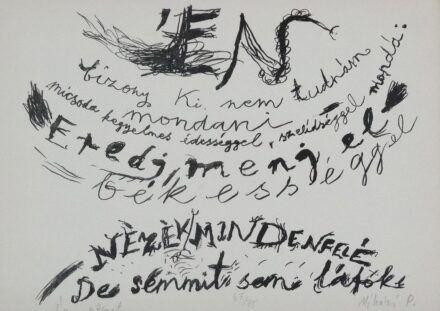 ÉN
bizony ki nem tudnám
mondani
micsoda kegyelmes édességgel, szelídséggel mondá:
Eredj, menj el
békességgel
NÉZÉK MINDENFELÉ
De semmit sem látók